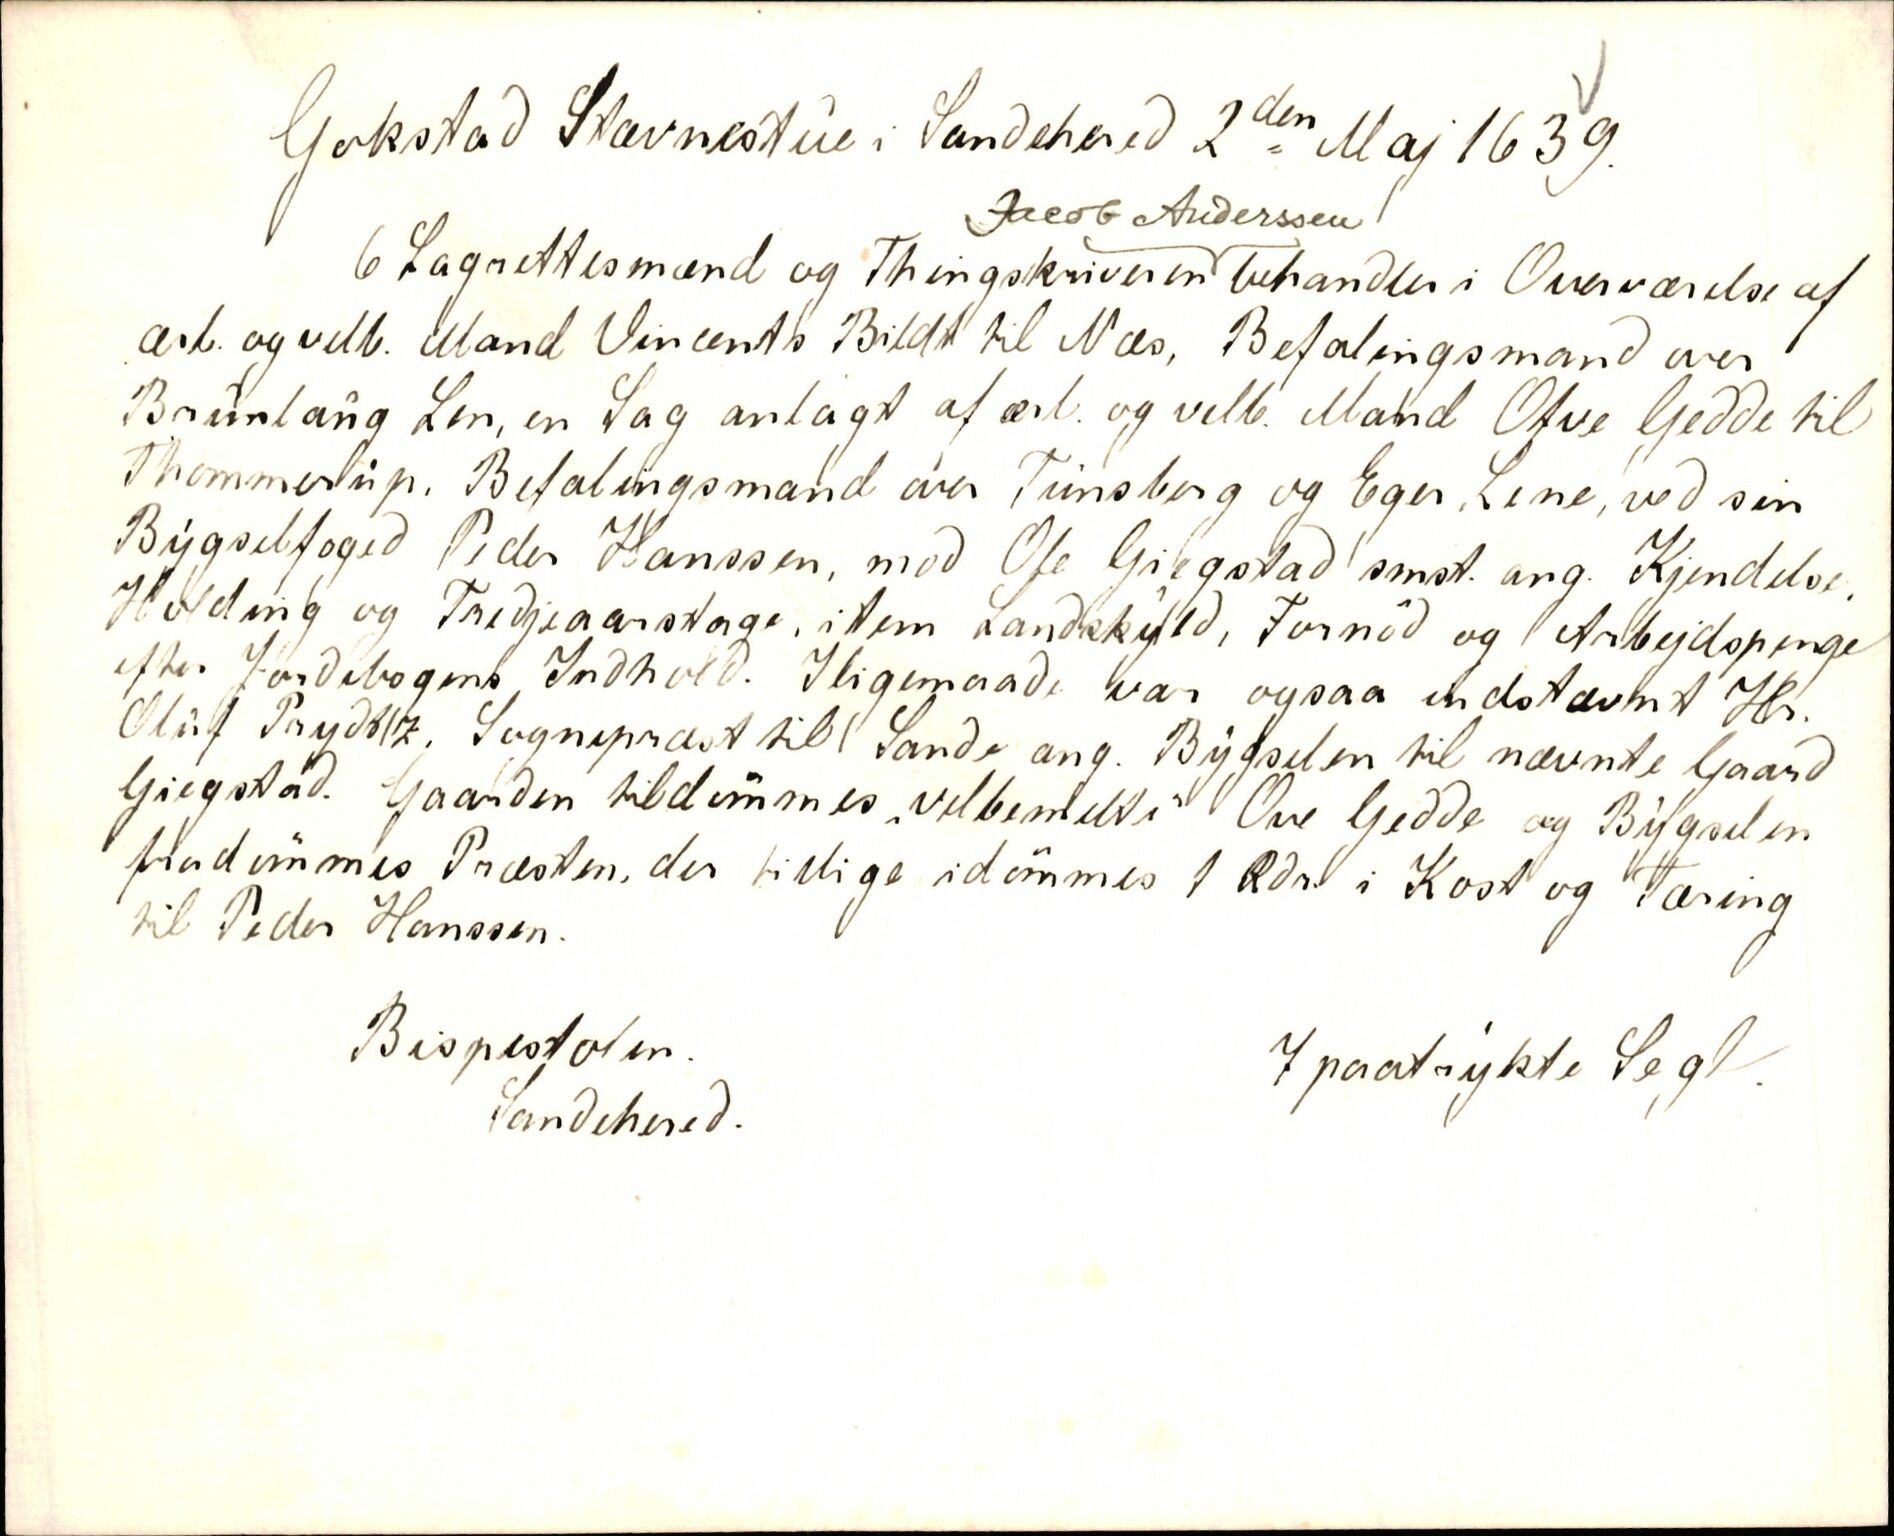 Gokstad Stævnestue i Sandehered 2den Maj 1639.
Jacob Anderssen
6 Lagrettesmænd og Thingskriveren behandler i Overværelse af
ærl. og velb. Mand Vincents Bildt til Næs, Befalingsmand over
Brunlaug Len, en Sag anlagt af ærl. og velb. Mand Ofve Gedde til
Thommerup, Befalingsmand over Tunsberg og Eger Lene, ved sin
Bygselfoged Peder Hanssen, mod Ole Giegstad smst. ang. Kjendelse,
Holding og Tredjeaarstage, item Landskyld, Fornød og Arbejdspenge
efter Jordebogens Indhold. Iligemaade var ogsaa indstævnt Hr.
Oluf Prydtz, Sogneprest til Sande ang. Bygselen til nævnte Gaard
Giegstad. Gaarden tildømmes „velbemelte" Ove Gedde og Bygselen
fradømmes Præsten, der tillige idømmes 1 Rdr. i Kost og Tæring
til Peder Hanssen.
Bispestolen.
7 paatrykte Segl.
Sandehered.